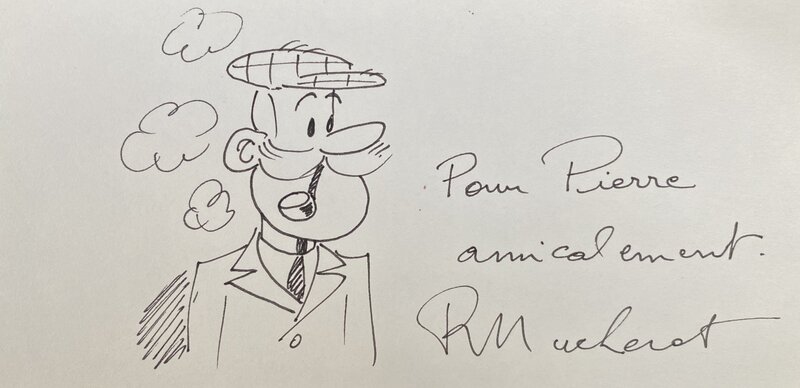 Pour Pierre
amicalement.
RMacherot